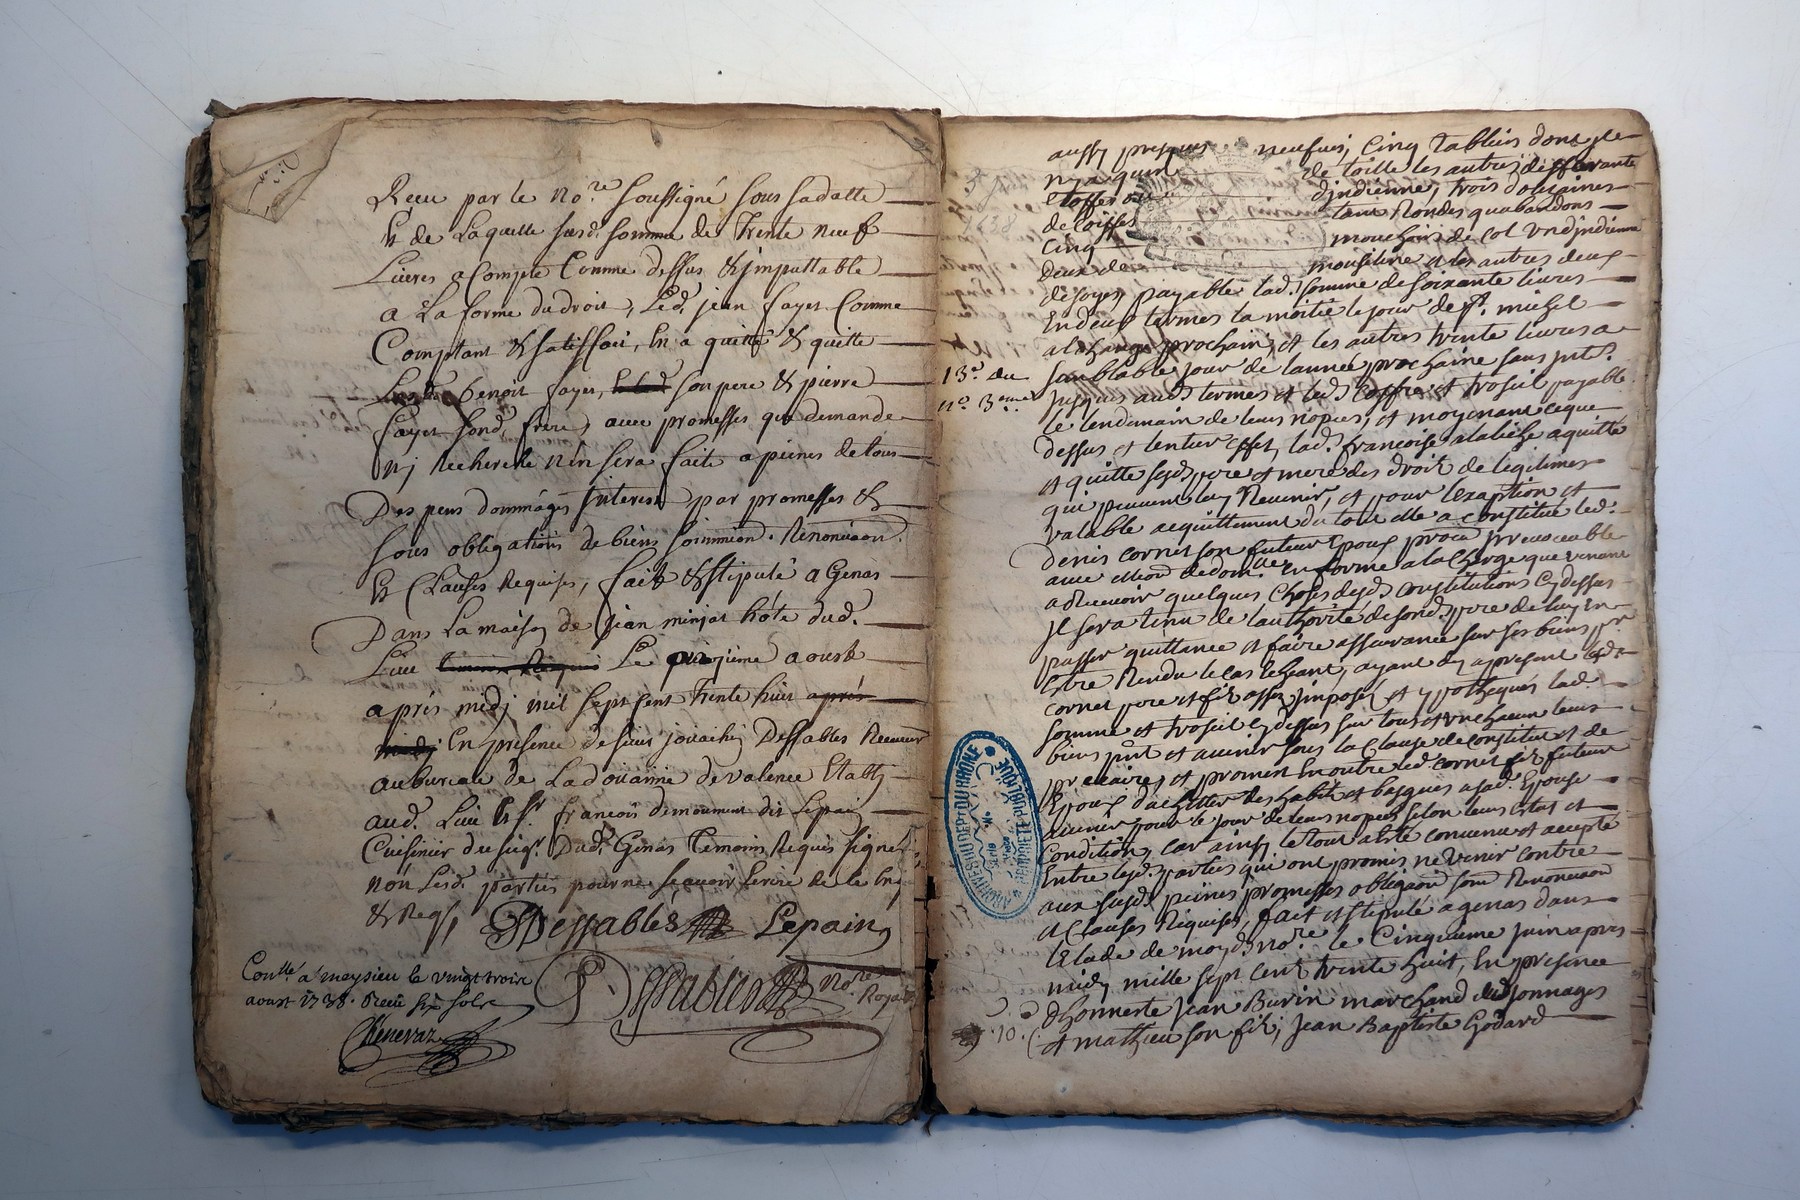 Receu par le No.re soussigné sous sadatte
Et de Laquelle susd. somme de Trente neuf
Livres a Compte Comme dessus & jmputtable
a La forme du droit, Led. jean fayet Comme
Comptant & satisfait, En a quitté & quitte
benoit fayet, son pere & pierre
fayet sond. frere, avec promesses que demande
nj Recherche n'en sera faite a peines de tous
Despens dommages Interest par promesses &
sous obligations de biens soummion. Renonciaon.
Et Clauses Requises, fait & stipulé a Genas
Dans La maison de jean minjat hôte dud.
Lieu Le aoust
aprés midj mil sept sent Trente huit aprés
midj En presence de sieur jouachin Dessables Receveur
au bureau de La doüanne de valence Etably
aud. Lieu & sr. francois demoument dit Lepain
Cuisinier du seigr. Dud. Genas Temoins Requis signés
non Lesd. parties pour ne scavoir Ecrire de ce Enq
& Reqs,
Dessables Lepain
Dessables No.re Royal
Con.llé a meysieu le vingt trois
aoust 1738. Receu six sols
Chenevaz
aussy presques neufues, Cinq tabliers dont jl
n'y a qu'un de toille les autres differante
Etoffes ou d'jndienne, trois douzaines
de Coiffes tant Rondes qu'abandons
Cinq mouchoirs de col un d'jndienne
deux de mousseline et les autres deux
de soyes, payable lad. somme de soixante livres
En deux termes la moitié le jour de st. michel
archange prochain, et les autres trente livres a
13.e du
n.o 3.eme
samblable jour de lannée prochaine sans jnts.
jusques auds termes et led. Coffre et trosseil payable
le lendemain de leurs nopces, et moyenant ceque
dessus et lentier effet, lad. francoise a quitté
et quitte sesd. pere et mere des droits de legitimes
qui peuvent luy Revenir, et pour l'exaption et
valable acquittement du tout elle a constitué led.
denis cornet son futeur Epoux procu. jrrevocable
avec Election de dom.lle En forme a la Charge que venant
a Recevoir quelques Choses desd. constitutions Cy dessus
jl sera tenu de l'authorité de sond. pere de luy En
passer quittance et faire assurance sur ses biens pr
Estre Rendu le cas Echeant, ayant dez apresent lesd.
cornet pere et fils assez jmposés et ypothequés lad.
somme et trosseil cy dessus sur tous et un chacun leurs
biens pnt et avenir sous la Clause de constitut et de
precaire, et promet En outre led. cornet fils futeur
Epoux d'achetter des habits et bagues a sad. Epouse
avenir pour le jour de leurs nopces selon leurs Etat et
condition, car ainsy le tout a Eté convenu et accepté
Entre lesd. parties qui ont promis ne venir contre
aux susd. peines promesses obligaon soum Renonciaon
et Clauses Requises, fait et stipulé a genas dans
l'Etude de moyd. no.re le Cinquieme juin apres
midy mille sept cent trente huit, En presence
d'honneste Jean Burin marchand de jonnages
10.
et mathieu son fils, Jean Baptiste Godard
ARCHIVES DU DEPT DU RHONE